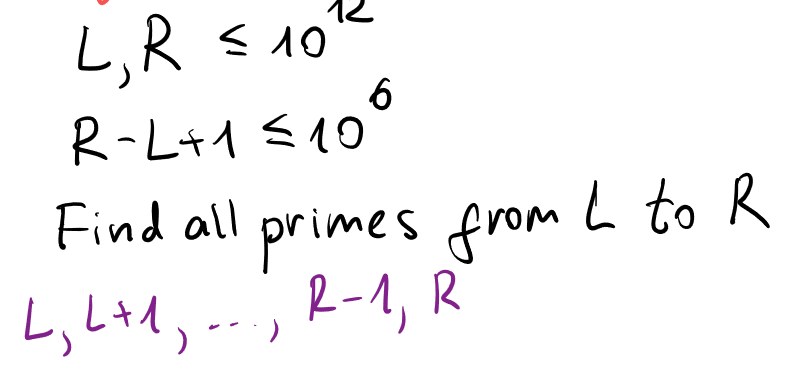 L, R ≤ 10^12
R-L+1 ≤ 10^6
Find all primes from L to R
L, L+1, ..., R-1, R